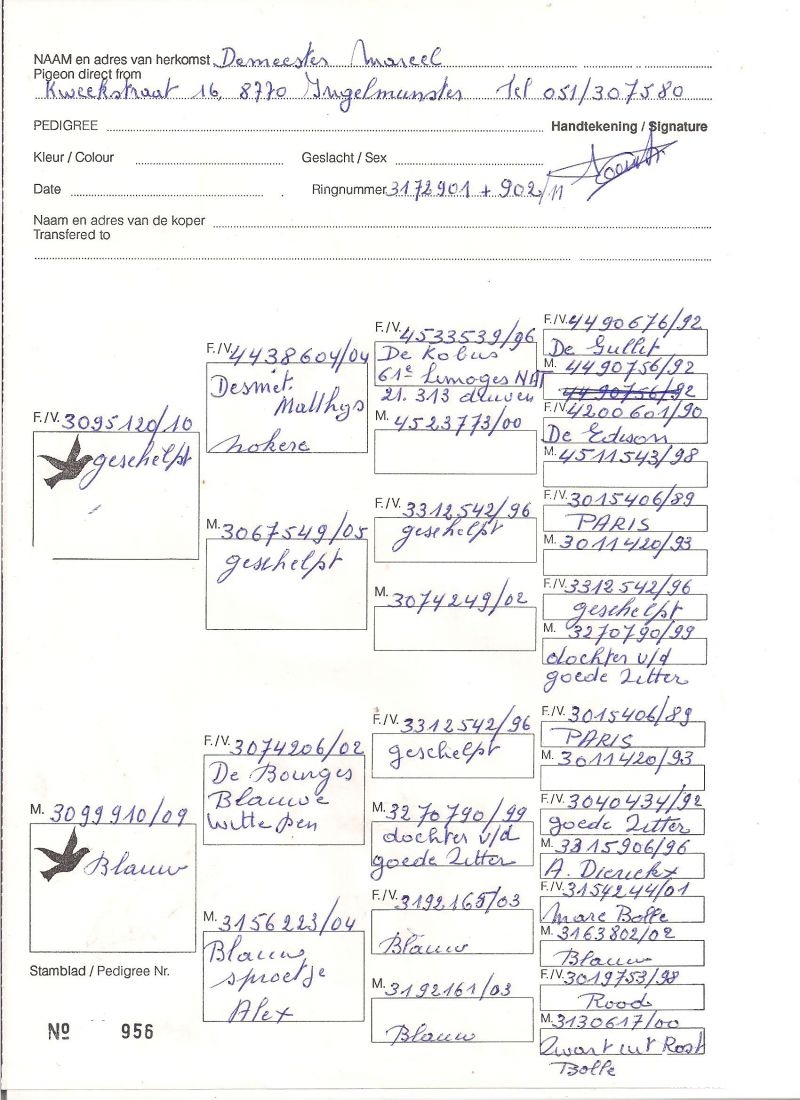 NAAM en adres van herkomst Demeester Marcel
Pigeon direct from
Kweekstraat 16, 8770 Ingelmunster Tel 051/307580
PEDIGREE
Handtekening / Signature
Kleur / Colour Geslacht / Sex
Date Ringnummer 3172901 + 902/11
Naam en adres van de koper
Transfered to
F./V. 3095120/10
geschelpt
F./V. 4438604/04
Desmet.
Matthys
nokere
M. 3067549/05
geschelpt
F./V. 4533539/96
De Kobus
61e Limoges NAT
21.313 duiven
M. 4523773/00
F./V. 3312542/96
geschelpt
M. 3074249/02
F./V. 4490676/92
De Gullit
M. 4490756/92
4490756/92
F./V. 4200601/90
De Edison
M. 4511543/98
F./V. 3015406/89
PARIS
M. 3011420/93
F./V. 3312542/96
geschelpt
M. 3270790/99
dochter v/d
goede Zitter
M. 3099910/09
Blauw
F./V. 3074206/02
De Bourges
Blauwe
witte pen
M. 3156223/04
Blauw
sproetje
Alex
F./V. 3312542/96
geschelpt
M. 3270790/99
dochter v/d
goede Zitter
F./V. 3192165/03
Blauw
M. 3192161/03
Blauw
F./V. 3015406/89
PARIS
M. 3011420/93
F./V. 3040434/92
goede Zitter
M. 3315906/96
A. Dierickx
F./V. 3154244/01
Marc Bolle
M. 3163802/02
Blauw
F./V. 3019753/98
Rood
M. 3130617/00
Zwart uit Rost
Bolle
Stamblad / Pedigree Nr.
Nº 956